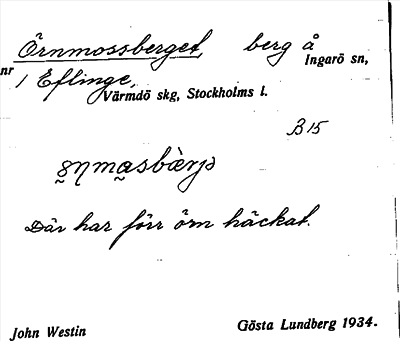 Örnmossberget, berg å Ingarö sn,
nr 1 Eflinge, Värmdö skg, Stockholms l.
B 15
Där har förr örn häckat.
John Westin Gösta Lundberg 1934.